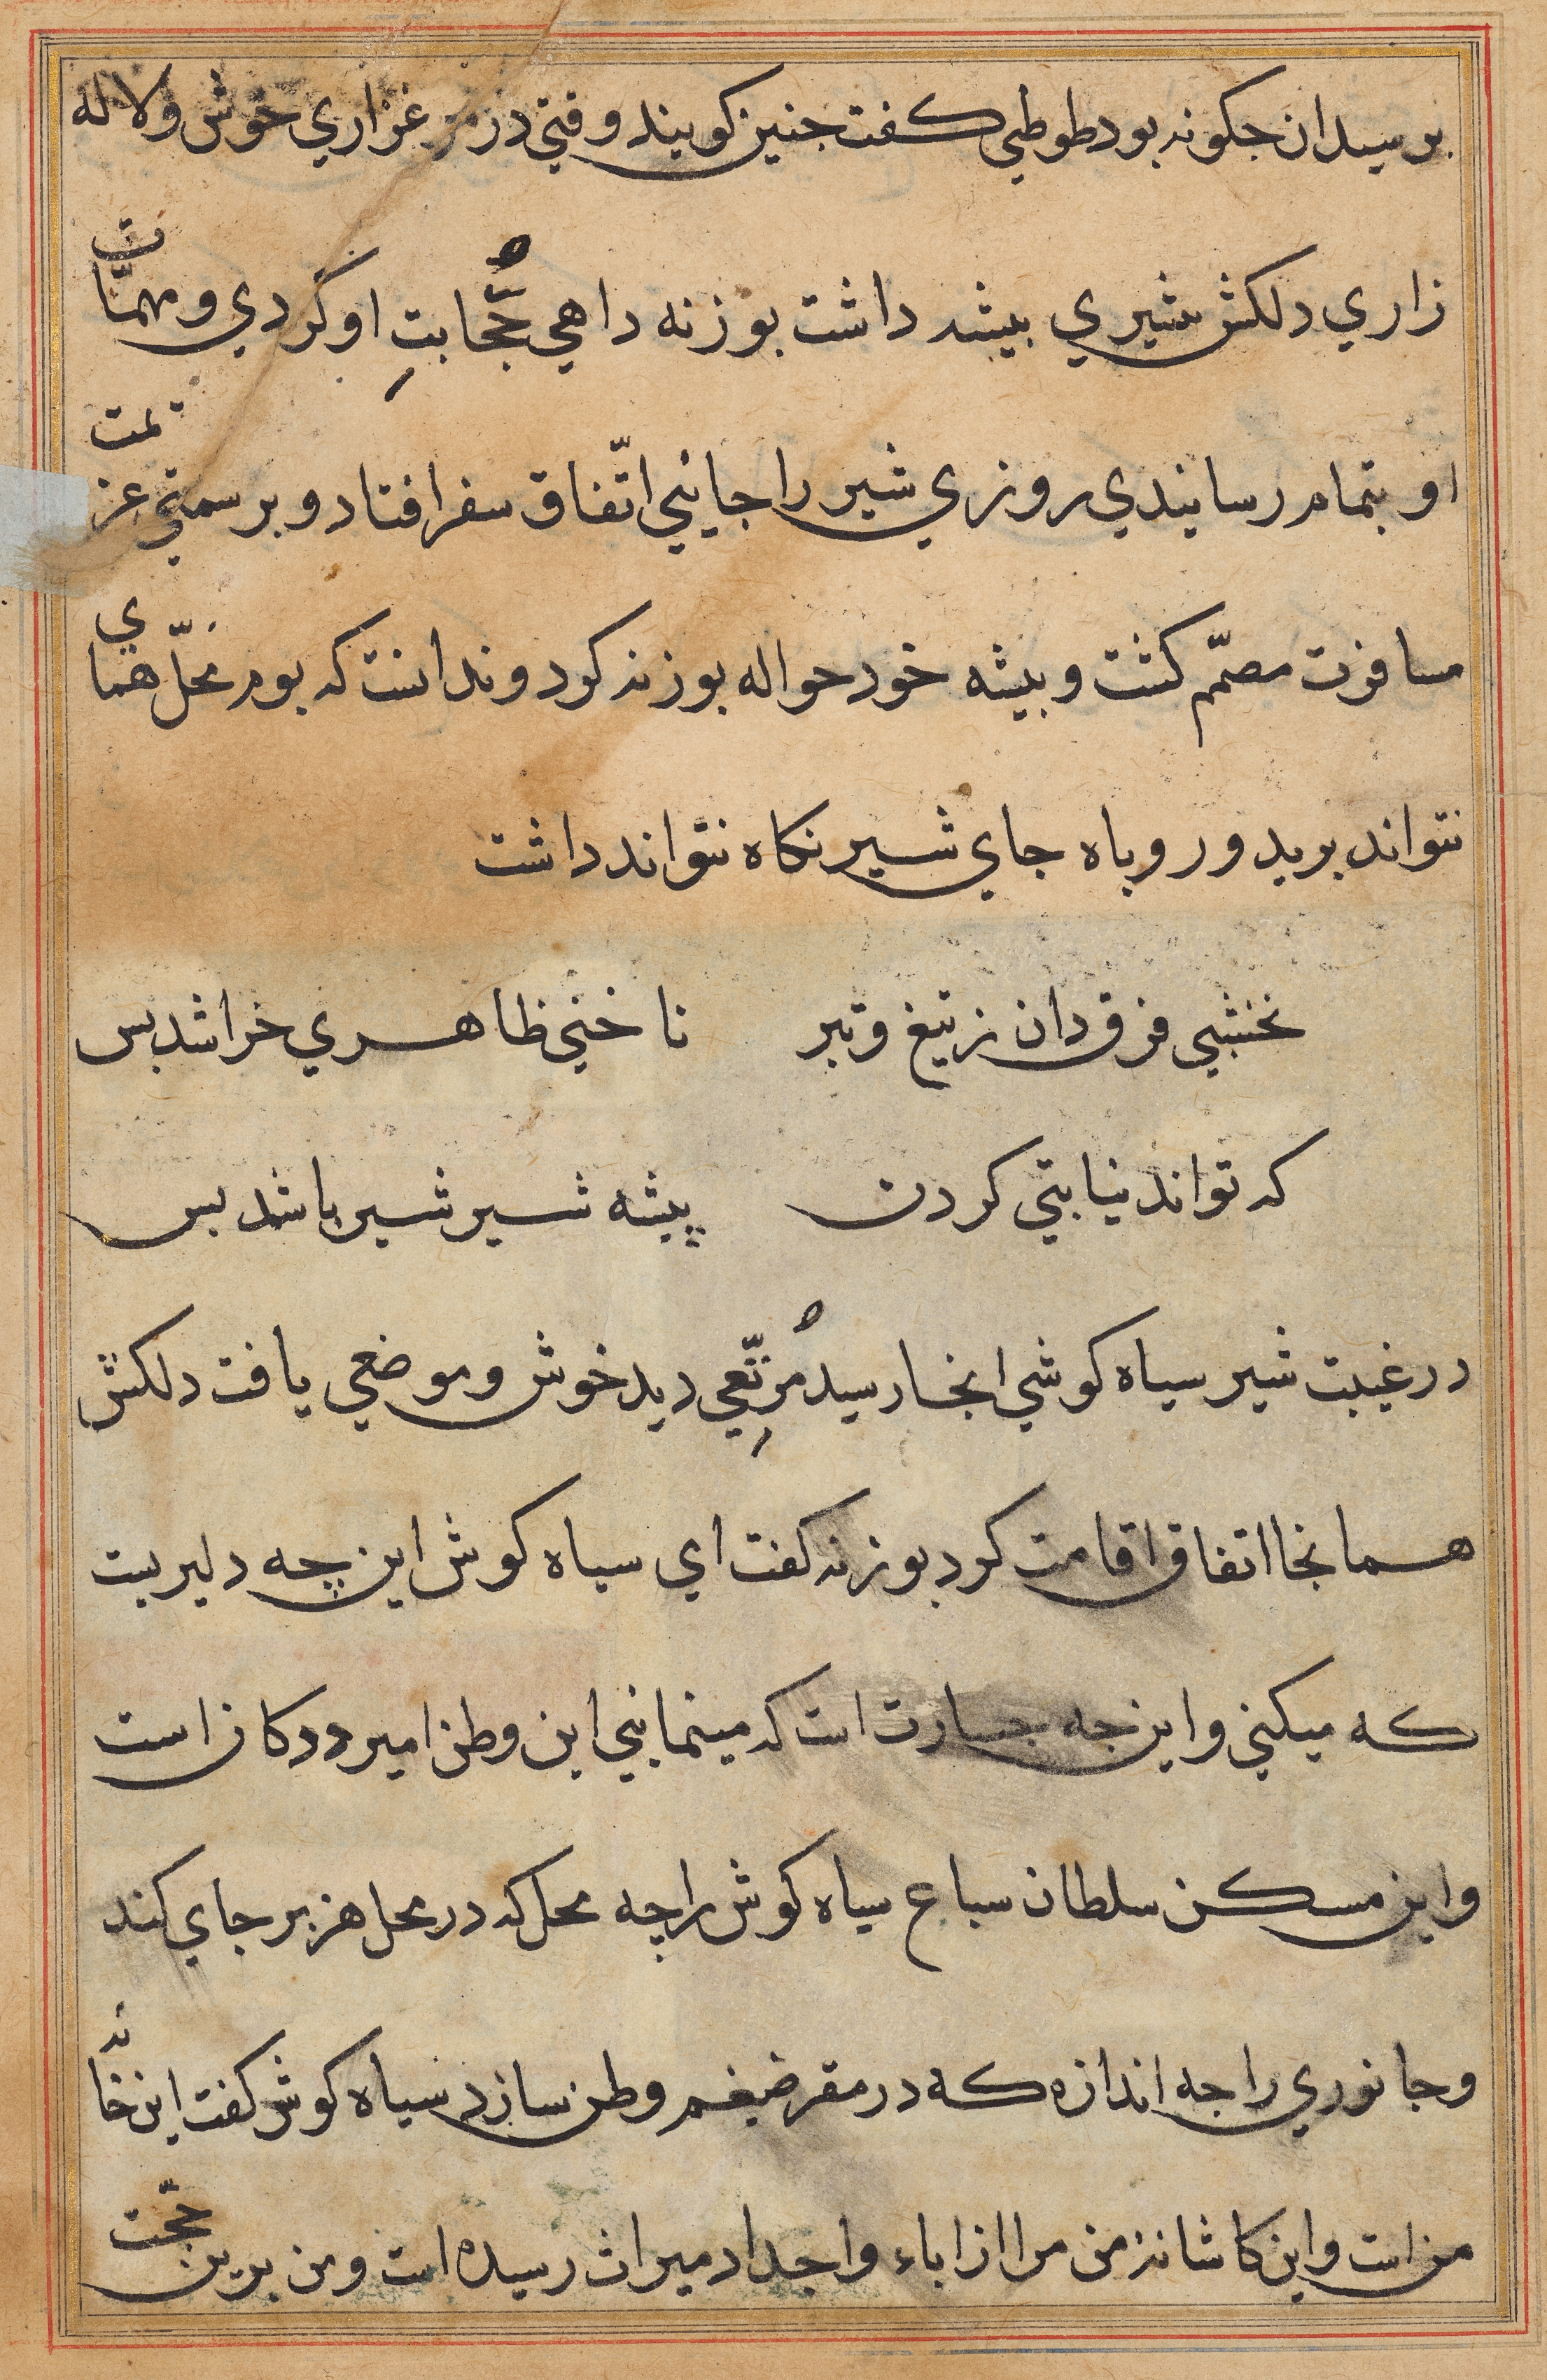 برسیدان جکونه بود طوطي کفت جنین کویند وقتي در مرغزاري خوش ولاله
زاري دلکش شیري بیشه داشت بوزنه داهي حُجّابتِ او کردي ومهمّات
او بتمام رسانیدي روزي شیر را جایئي اتّفاق سفر افتاد و بر سمتي عزیمت
مسافرت مصمّم کشت و بیشه خود حواله بوزنه کرد و ندانست که بوم محلّ همای
نتواند برید و روباه جاي شیر نکاه نتواند داشت
نخشبي فرق دان ز تیغ و تبر ناخني ظاهري خراشد بس
که تواند نیابتي کردن پیشه شیر شیر باشد بس
در غیبت شیر سیاه کوشي انجا رسید مُرتّعِي دید خوش و موضعي یافت دلکش
همانجا اتفاق اقامت کرد بوزنه کفت اي سیاه کوش این چه دلیریت
که میکني و این جه جسارت است که مینمایني این وطن امیر ددکان است
و این مسکن سلطان سباع سیاه کوش را چه محل که در محل هزبر جاي کند
و جانوري را جه اندازه که در مقر ضیغم وطن سازد سیاه کوش کفت این خانه
من است و این کاشانه من مرا از اباء و اجداد میراث رسیده است و من برین حجّت